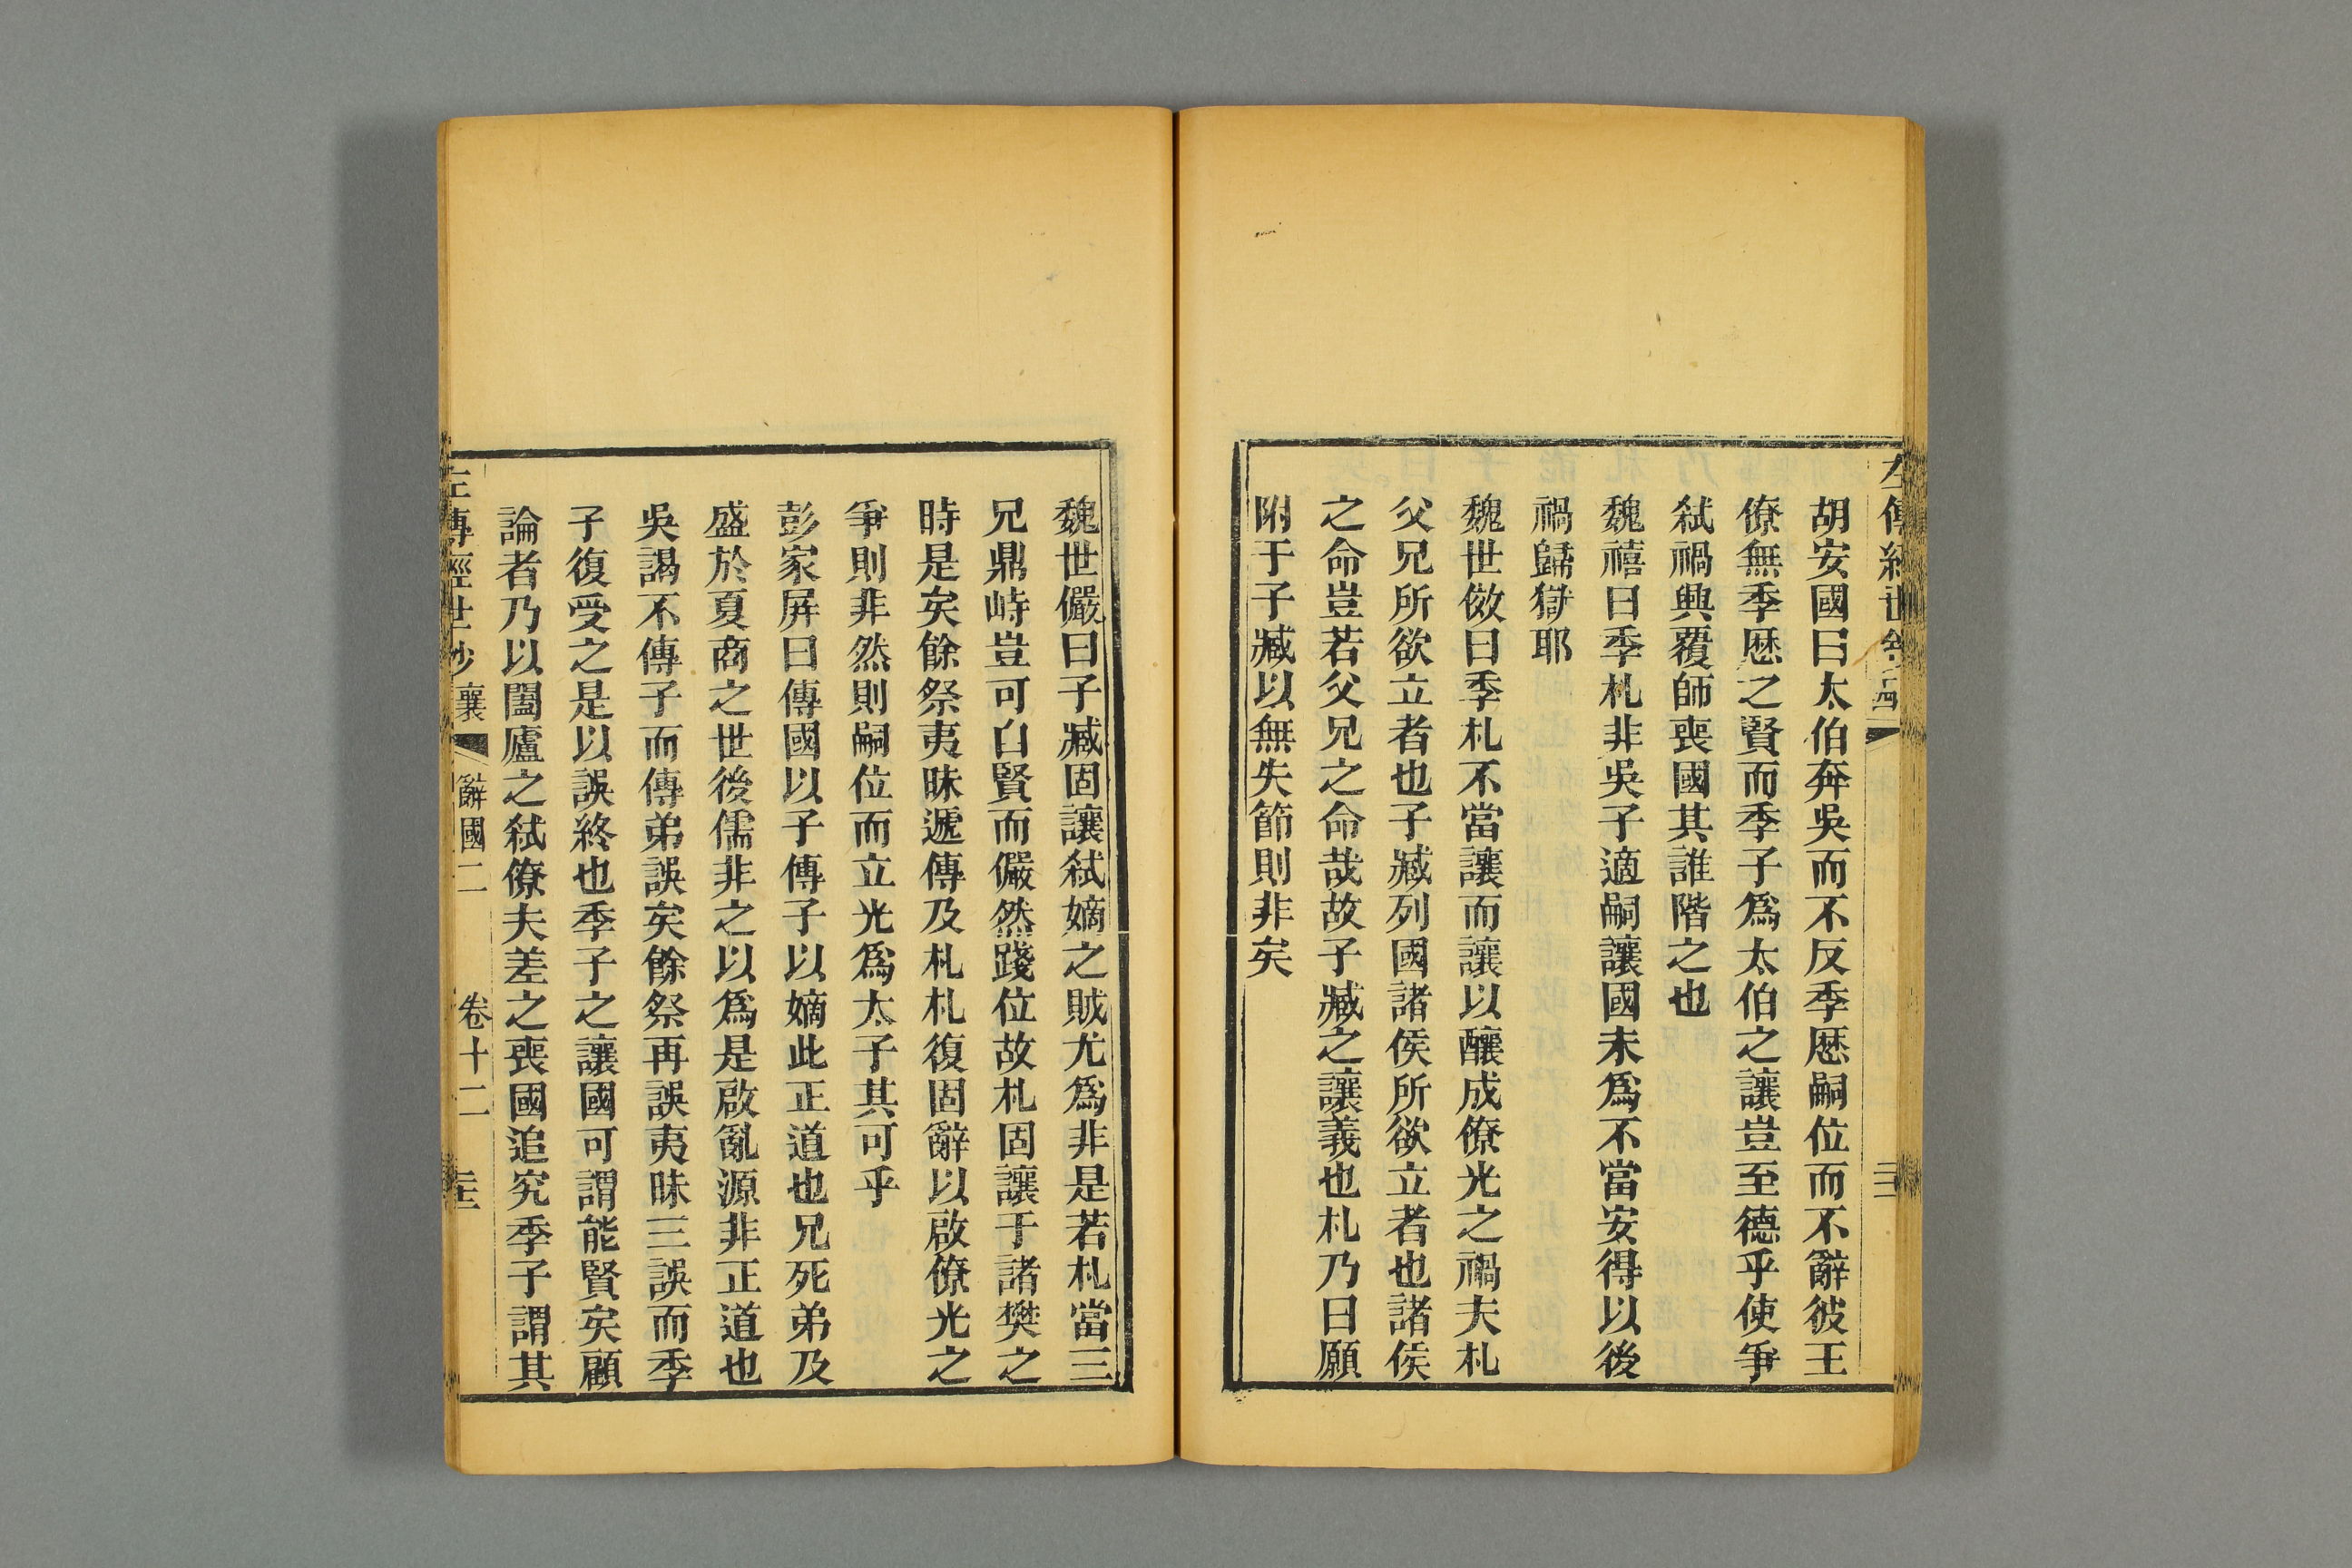 胡安國曰太伯奔吳而不反季歷嗣位而不辭彼王
僚無季歷之賢而季子爲太伯之讓豈至德乎使爭
弑禍興覆師喪國其誰階之也
魏禧曰季札非吳子適嗣讓國未爲不當安得以後
禍歸獄耶
魏世傚曰季札不當讓而讓以釀成僚光之禍夫札
父兄所欲立者也子臧列國諸侯所欲立者也諸侯
之命豈若父兄之命哉故子臧之讓義也札乃曰願
附于子臧以無失節則非矣
魏世儼曰子臧固讓弑嫡之賊尤爲非是若札當三
兄鼎峙豈可自賢而儼然踐位故札固讓于諸樊之
時是矣餘祭夷昧遞傳及札札復固辭以啟僚光之
爭則非然則嗣位而立光爲太子其可乎
彭家屏曰傳國以子傳子以嫡此正道也兄死弟及
盛於夏商之世後儒非之以爲是啟亂源非正道也
吳謁不傳子而傳弟誤矣餘祭再誤夷昧三誤而季
子復受之是以誤終也季子之讓國可謂能賢矣顧
論者乃以闔廬之弑僚夫差之喪國追究季子謂其
左傳經世鈔 襄 辭國二 卷十二